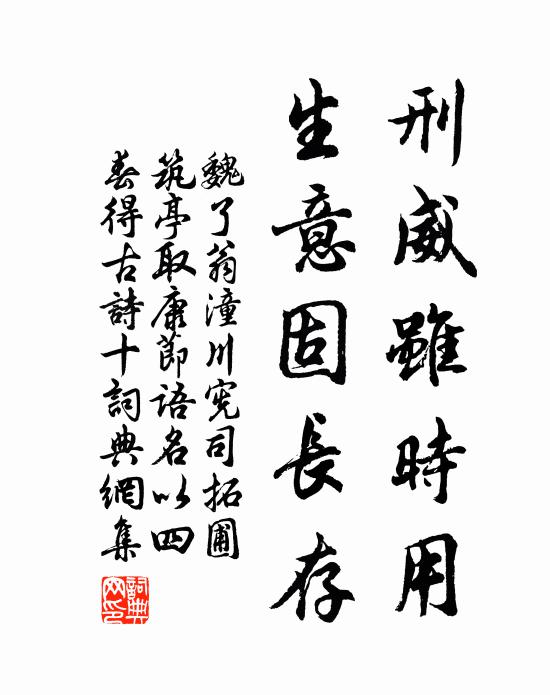 刑威雖時用
生意固長存
魏了翁潼川宪司拓圃
筑亭取康節語名以四
春得古詩十詞典網集
詞典網印